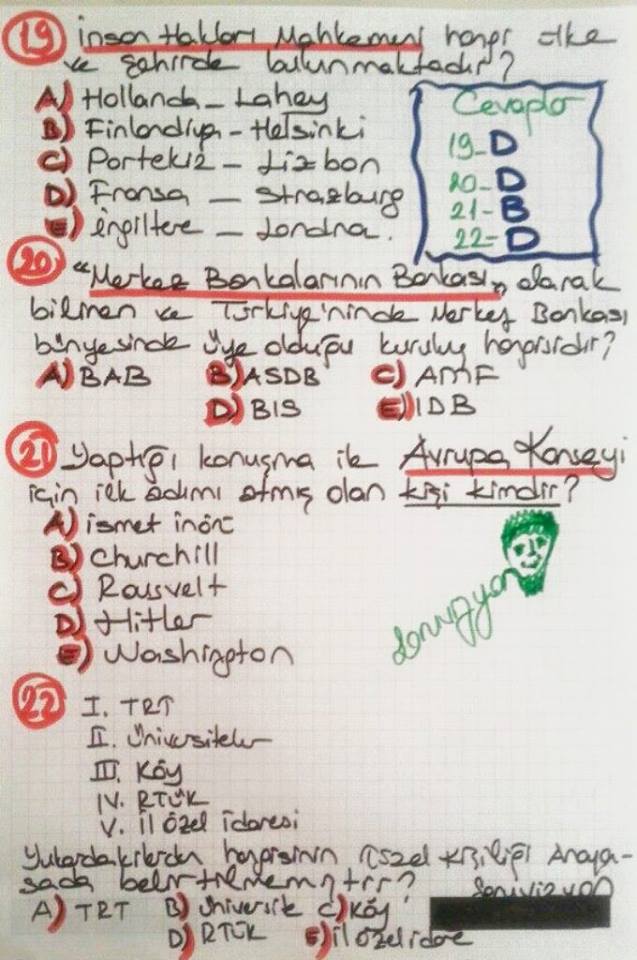 19) İnsan Hakları Mahkemesi hangi ülke
ve şehirde bulunmaktadır?
A) Hollanda – Lahey
B) Finlandiya – Helsinki
C) Portekiz – Lizbon
D) Fransa – Strazburg
E) İngiltere – Londra.
Cevaplar
19- D
20- D
21- B
22- D
20) "Merkez Bankalarının Bankası" olarak
bilinen ve Türkiye'ninde Merkez Bankası
bünyesinde üye olduğu kuruluş hangisidir?
A) BAB B) ASDB C) AMF
D) BIS E) IDB
21) Yaptığı konuşma ile Avrupa Konseyi
için ilk adımı atmış olan kişi kimdir?
A) ismet inönü
B) Churchill
C) Rousvelt
D) Hitler
E) Washington
22) I. TRT
II. Üniversiteler
III. Köy
IV. RTÜK
V. İl özel idaresi
Yukardakilerden hangisinin tüzel kişiliği Anaya-
sada belirtilmemiştir?
A) TRT B) Üniversite C) Köy
D) RTÜK E) il özel idare